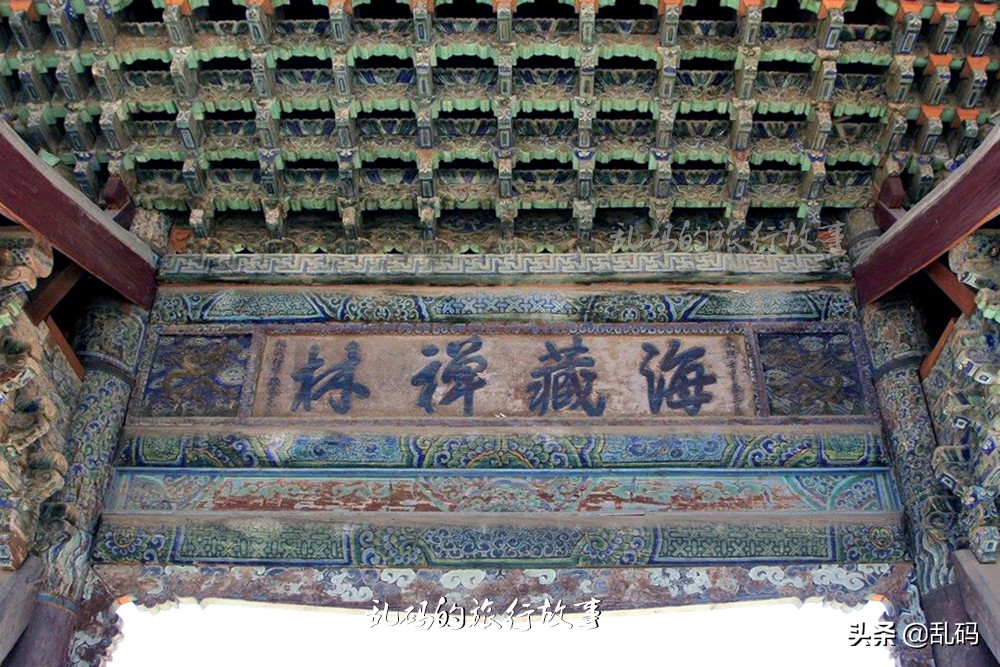 乱码的旅行故事
海藏禅林
乱码的旅行故事
头条 @乱码